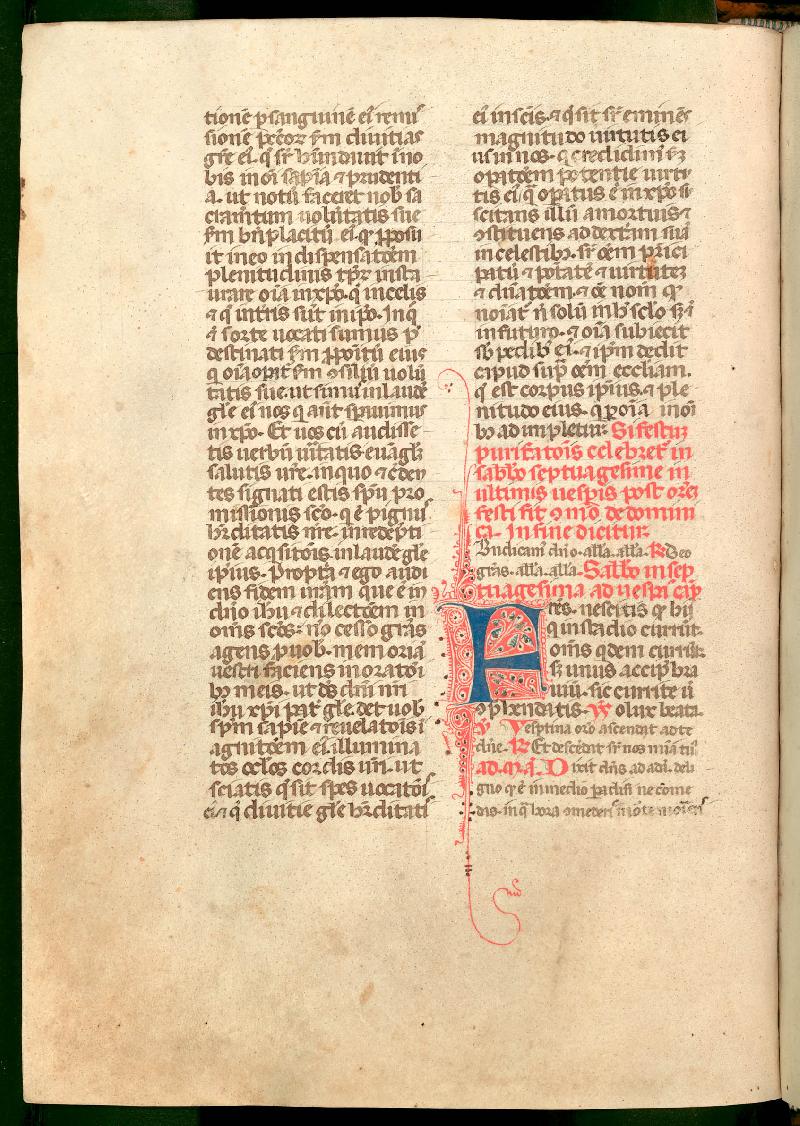 tionē ꝑ sanguinē eiꝰ remis
sionē pctōꝝ scdm diuitias
grē eiꝰ. q̄ suꝑhabundauit ī no
bis in oī sapīa ⁊ prudenti
a. ut notū faceret nob sa
cramtum uolūtatis sue
scdm bn̄placitū eiꝰ. qd ꝓposu
it in eo in dispensatōem
plenitudinis tꝑꝝ insta
urare oīa in xp̄o. q̄ in celis
⁊ q̄ in tris sūt in ip̄o. In q̊
⁊ sorte uocati sumus p̄
destinati scdm ꝓpoītū eius
q oīa oꝑat̉ scdm ꝯsiliū uolū
tatis sue. ut simꝰ in laudē
glē eiꝰ nos q an̄ spauimus
in xp̄o. Et uos cū audisse
tis uerbū uītatis euāglm
salutis ure. in quo ⁊ c̄den
tes signati estis sp̄u pro
missionis scō. q ē pignꝰ
hr̄ditatis nr̄e. in redēpti
onē acq̄sitōis. in laudē glē
ipiꝰ. Propt̉a ⁊ ego audi
ens fidem uram que ē in
dn̄o ih̄u ⁊ dilectōem in
om̄s scōs: nō cesso grās
agens ꝓ uob. memoriā
uestri faciens in oratōī
bꝫ meis. ut ds dn̄i nri
ih̄u xp̄i pat̉ glē. det uob
sp̄m sapīe ⁊ reuelatōis ī
agnitōem eiꝰ. illumina
tos oclos cordis uri. ut
sciatis q̄ sit spes uocatōīs
eiꝰ. ⁊ q̄ diuitie glē hr̄ditatis
eiꝰ in scis. ⁊ q̄ sit suꝑeminēs
magnitudo uirtutis ei
us in nos. q̄ credidimꝰ scdm
oꝑatōem potentie uirtu
tis eiꝰ q̄ oꝑatus ē in xp̄o su
scitans illū a mortuis ⁊
ꝯstituens ad dextam suā
in celestibꝫ. suꝑ oēm p̄nci
patū ⁊ potatē ⁊ uirtutē
⁊ dn̄atōem. ⁊ oē nom̄ qd
noīat̉ n̄ solū in hͦ sclo sꝫ ⁊
in futuro. ⁊ oīa subiecit
sb pedibꝫ eiꝰ. ⁊ ip̄m dedit
capud supͣ oēm eccliam.
q̄ est corpus ipius. ⁊ ple
nitudo eius. q ꝑ oīa in oīī
bꝫ adimpletur. Si festum
purificatōis celebret̉ in
sabbo septuagesime in
ultimis uespis post orōēm
festi fit ꝯmō de domini
ca. In fine dicitur.
Bn̄dicamꝰ dn̄o. alla. alla. ℟ Deo
grās. alla. alla. Sabbo in sep
tuagesima ad uesꝑas cap̄
Frēs. nescitis qd hij
q in stadio currūt.
om̄s q̄dem currūt.
sꝫ unus accipit bra
uiū. sic currite ut
ꝯprehendatis. ympn̄ O lux beata.
℣ Vesptina orō ascendat ad te
dn̄e. ℟ Et descēdat suꝑ nos mīa tua.
ad. mͣ. aͣ. Dixit dn̄s ad adā. de li
gno qd ē in medio padisi ne come
das. in q̄ hora ꝯmederis morte morieris